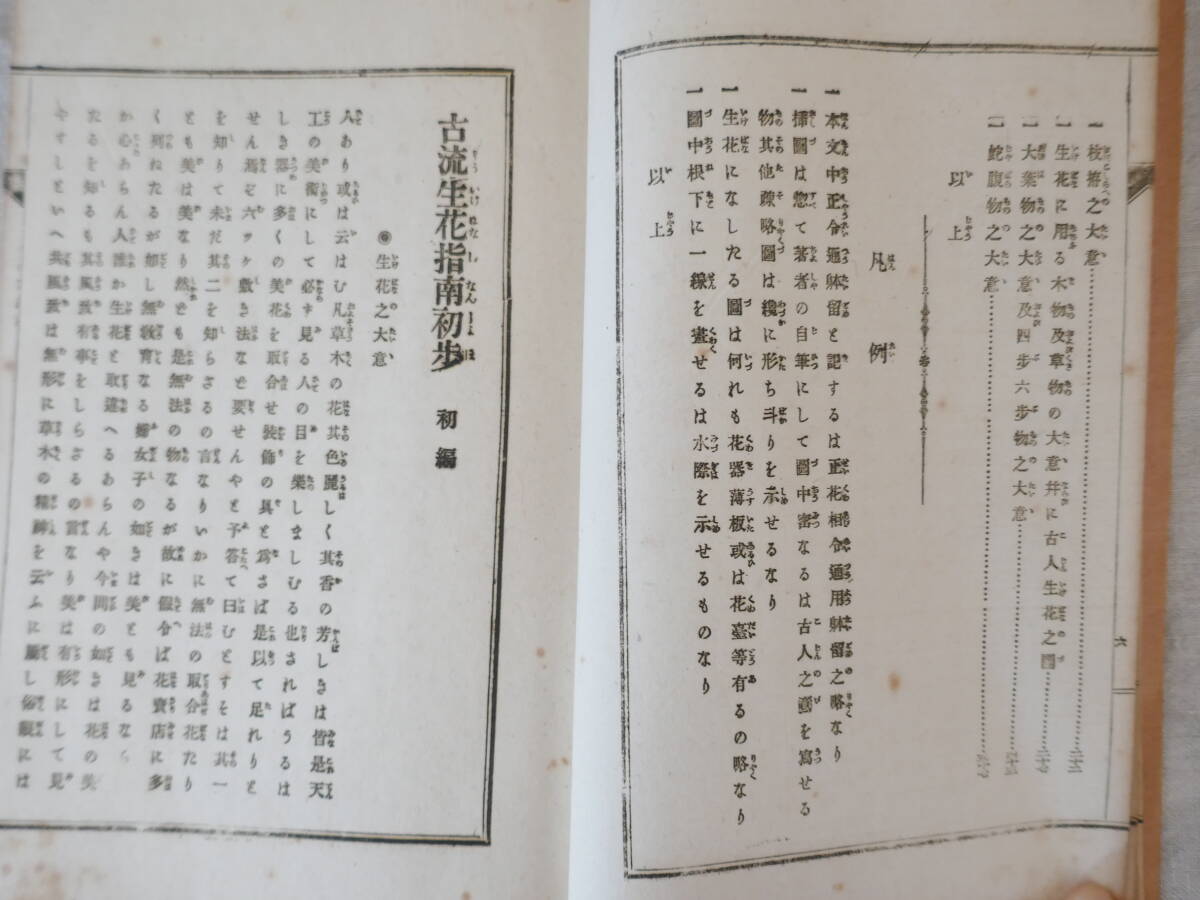 一枝撓之大意
一生花に用る木物及草物の大意幷に古人生花之圖
一大葉物之大意及四歩六歩物之大意
一蛇腹物之大意
以上
凡例
一本文中正令通躰留と記するは正花相令通用躰留之略なり
一挿圖は惣て著者の自筆にして圖中密なるは古人之意を寫せる
物其他疎略圖は纔に形ち斗りを示せるなり
一生花になしたる圖は何れも花器薄板或は花臺等有るの略なり
一圖中根下に一線を畫せるは水際を示せるものなり
以上
六
古流生花指南初歩 初編
◉生花之大意
人あり或は云はむ凡草木の花其色麗しく其香の芳しきは皆是天
工の美術にして必す見る人の目を樂しましむる也さればうるは
しき器に多くの美花を取合せ裝飾の具と爲さば是以て足れりと
せん焉ぞ六ヶ敷き法などを要せんやと予答て曰むとすそは其一
を知りて未だ其二を知らざるの言なりいかに無法の取合花たり
とも美は美なり然ども是無法の物なるが故に假令ば花賣店に多
く列ねたるが如し無敎育なる婦女子の如きは美とも見るなら
か心あらん人誰か生花と取違へるあらんや今問の如きは花の美
たるを知るも其風致有事をしらざるの言なり美は有形にして見
やすしといへ共風致は無形に草木の精神を云ふに屬し俗眼には